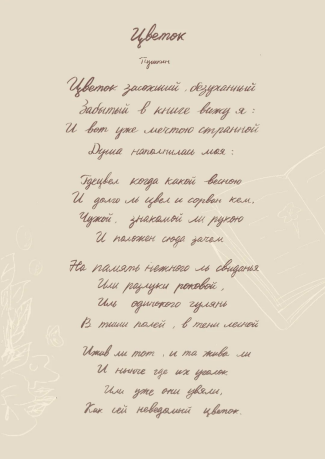 Цветок
Пушкин
Цветок засохший, безуханный
Забытый в книге вижу я:
И вот уже мечтою странной
Душа наполнилась моя:
Где цвел когда какой весною
И долго ль цвел и сорван кем,
Чужой, знакомой ли рукою
И положен сюда зачем
На память нежного ль свиданья
Или разлуки роковой,
Иль одинокого гулянь
В тиши полей, в тени лесной
И жив ли тот, и та жива ли
И нынче где их уголок
Или уже они увяли,
Как сей неведомый цветок.